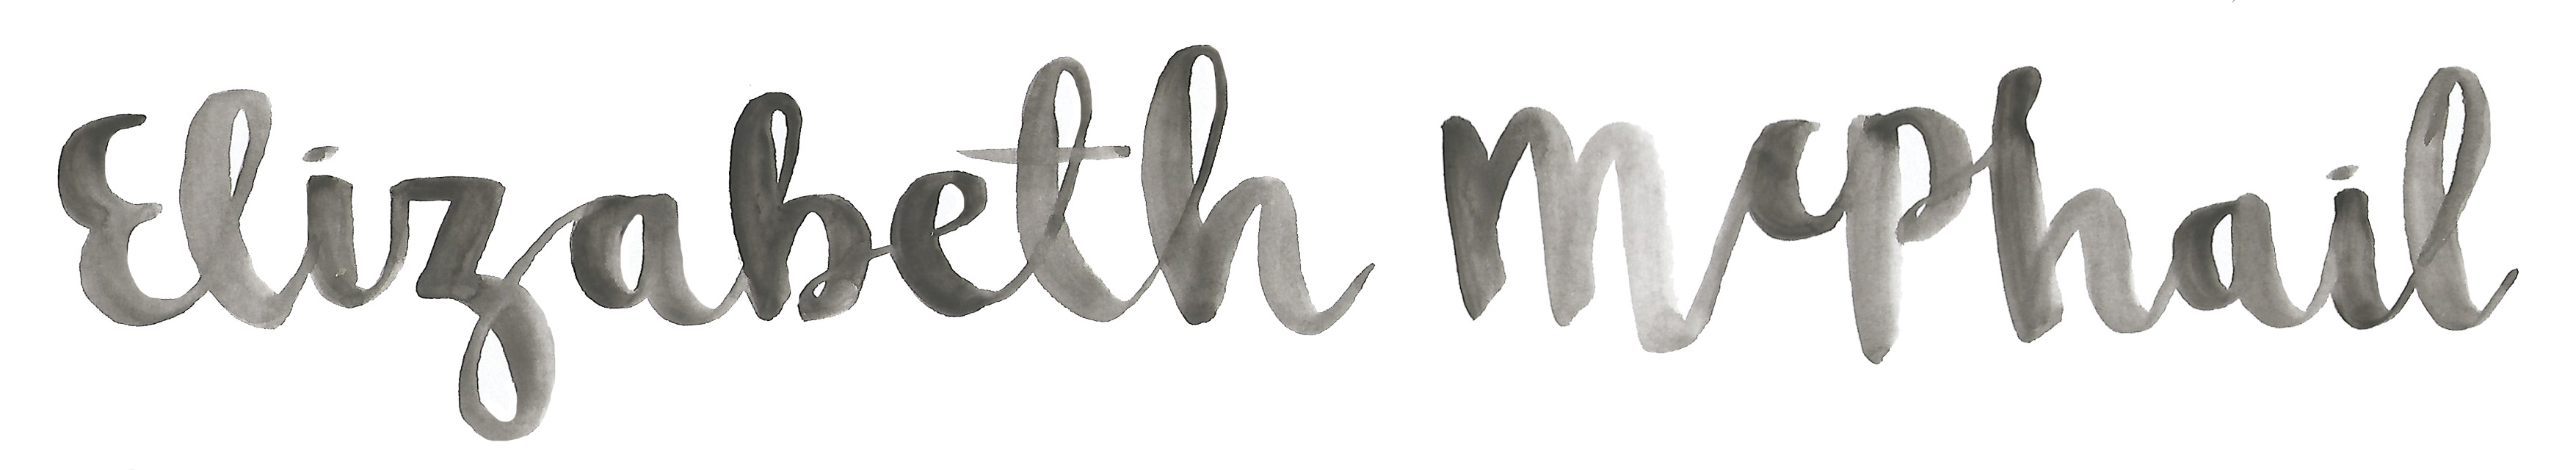 Elizabeth McPhail